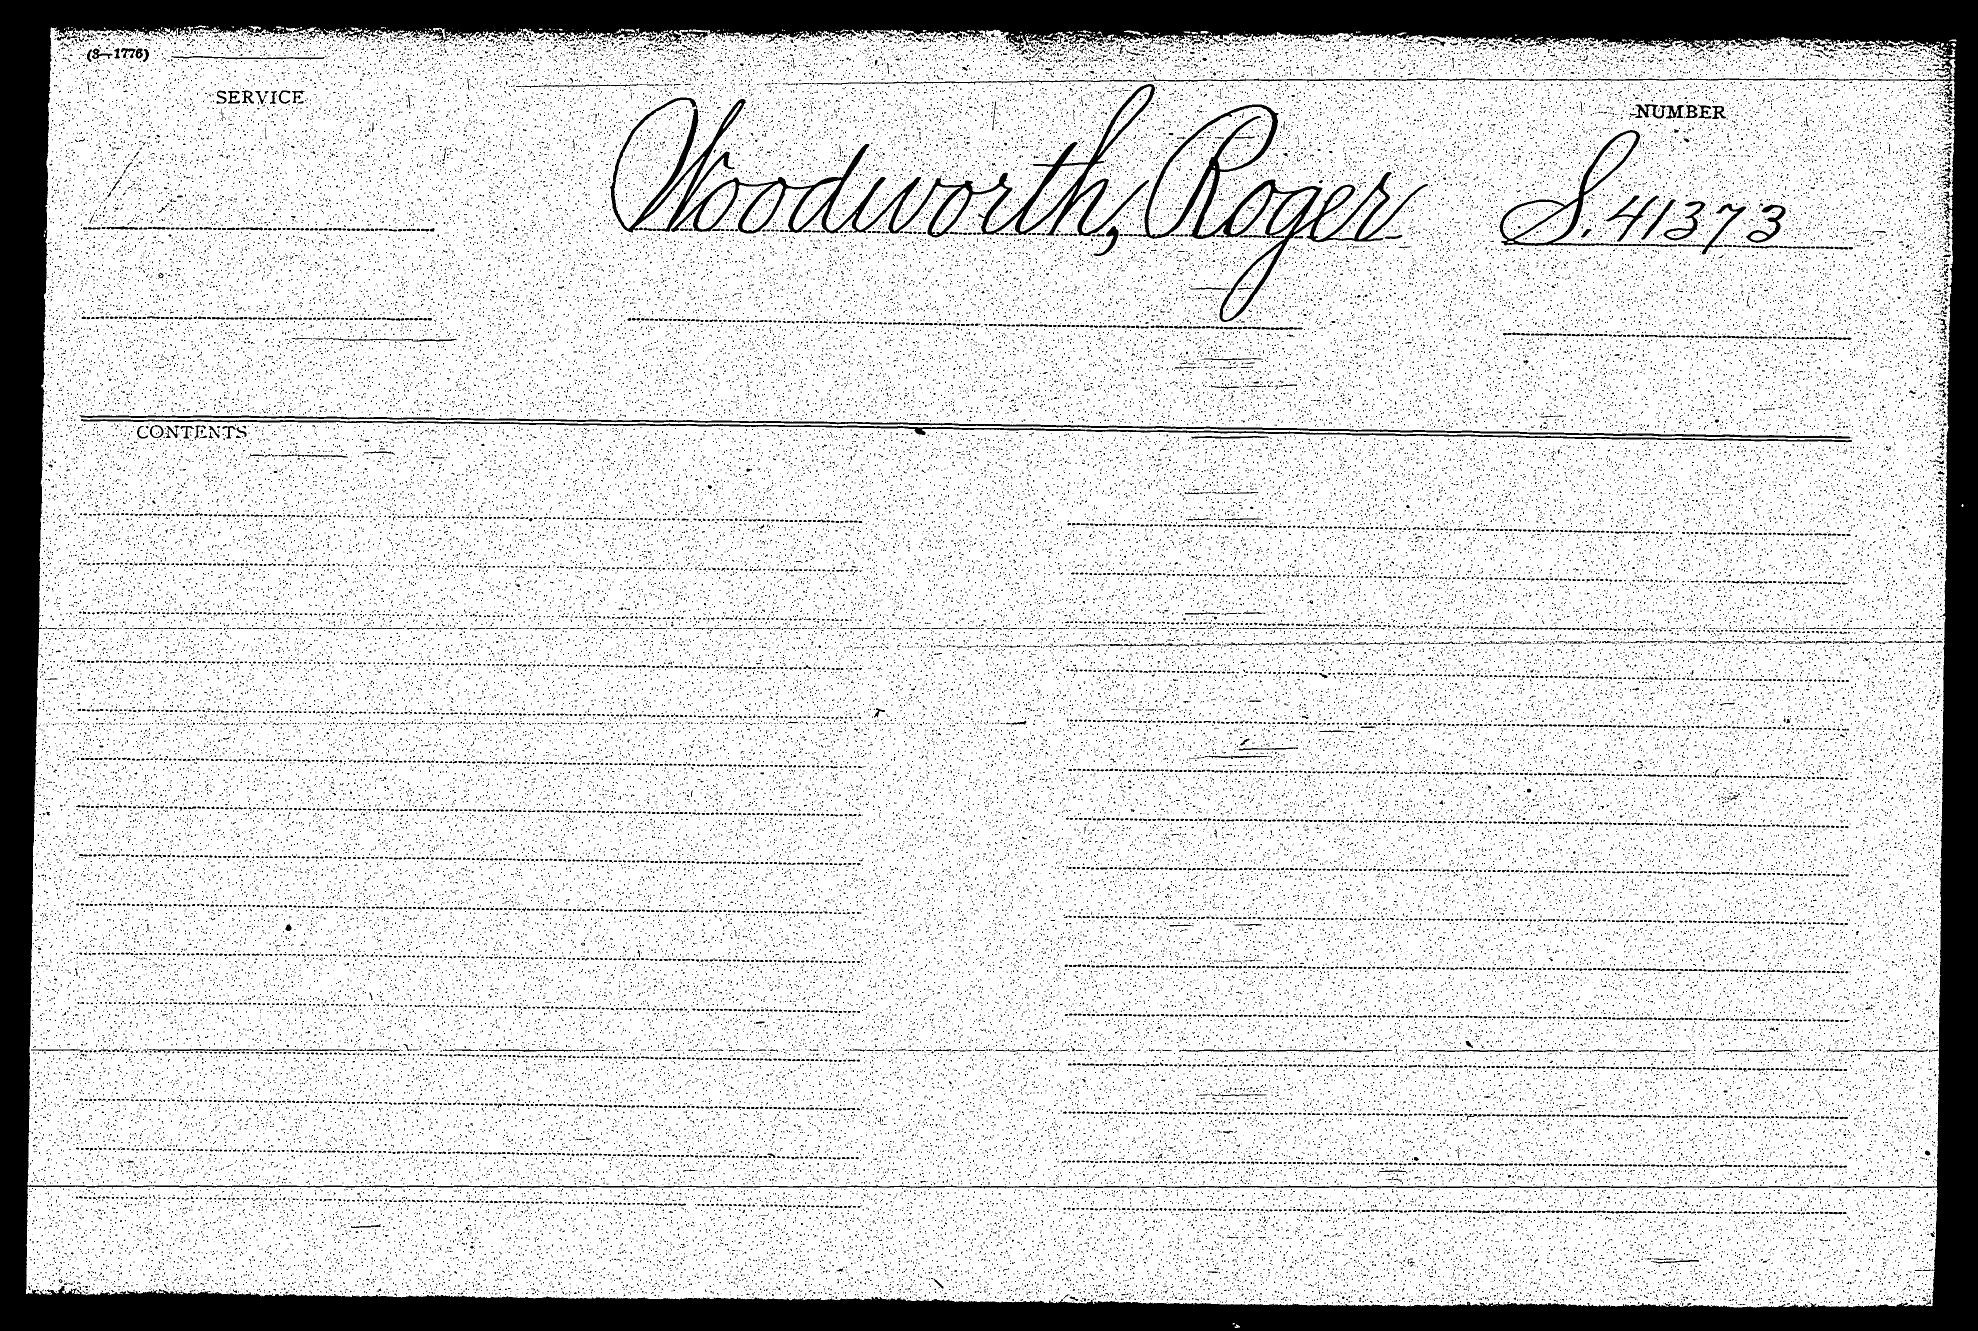 (3—1776)
SERVICE
NUMBER
Woodworth, Roger S. 41373
CONTENTS